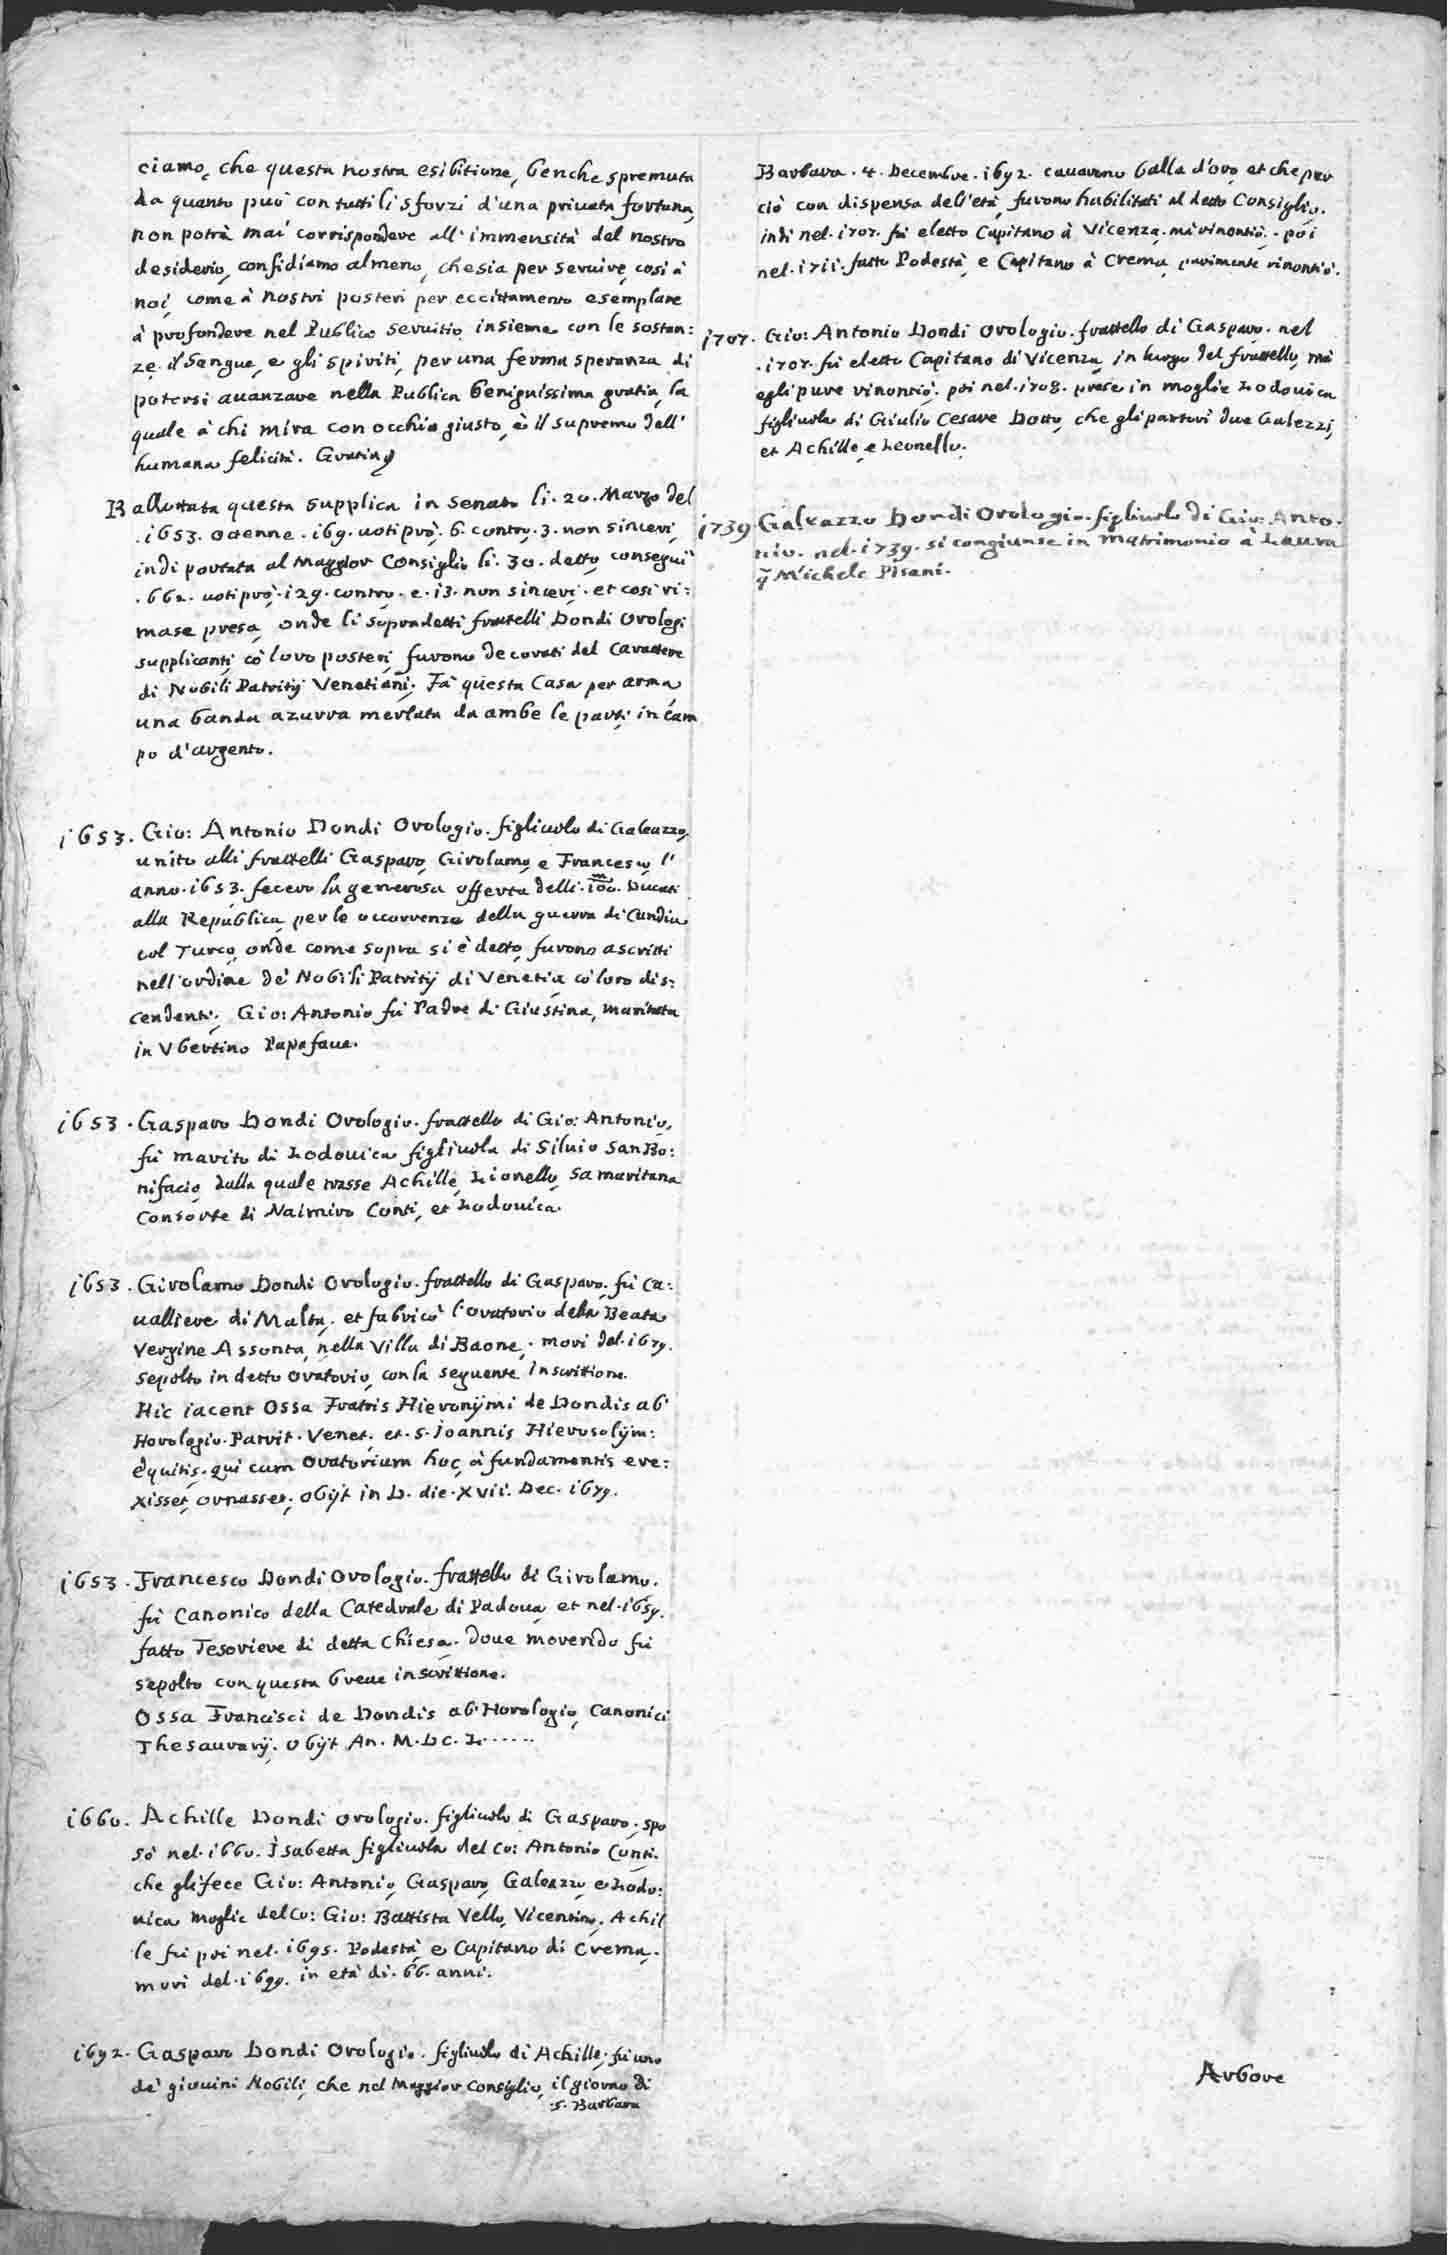 ciamo, che questa nostra esibitione, benche spremuta
da quanto può con tutti li sforzi d'una privata fortuna,
non potrà mai corrispondere all'immensità del nostro
desiderio, confidiamo almeno, che sia per servire, così à
noi, come à nostri posteri per eccittamento esemplare
à profondere nel Publico servitio insieme con le sostan:
ze il sangue, e gli spiriti, per una ferma speranza di
potersi avanzare nella Publica benignissima gratia, la
quale à chi mira con occhio giusto, è il supremo dell'
humana felicità. Gratia
Ballottata questa supplica in Senato li. 20. Marzo del
.1653. ottenne .169. voti prò. 6. contro. 3. non sinceri,
indi portata al Maggior Consiglio li. 30. detto conseguì
.662. voti prò. 129. contro. e. 13. non sinceri. et così ri:
mase presa, onde li sopradetti frattelli Dondi Orologi
supplicanti, cò loro posteri, furono decorati del Carattere
di Nobili Patritij Venetiani. Fà questa Casa per arma
una banda azurra merlata da ambe le parti in cam
po d'argento.
1653. Gio: Antonio Dondi Orologio. figliuolo di Galeazzo,
unito alli frattelli Gasparo, Girolamo, e Francesco, l'
anno. 1653. fecero la generosa offerta delli. 100.m Ducati
alla Republica per le occorrenze della guerra di Candia
col Turco, onde come sopra si è detto, furono ascritti
nell'ordine dè Nobili Patritij di Venetia cò loro dis:
cendenti. Gio: Antonio fù Padre di Giustina, maritata
in Vbertino Papafaua.
1653. Gasparo Dondi Orologio. frattello di Gio: Antonio,
fù marito di Lodouica figliuola di Siluio San Bo:
nifacio, dalla quale trasse Achille, Lionello, Samaritana
Consorte di Naimiro Conti, et Lodouica.
1653. Girolamo Dondi Orologio. frattello di Gasparo. fù Ca:
uallieve di Malta. et fabricò l'Oratorio della Beata
Vergine Assonta, nella Villa di Baone. morì del. 1679.
sepolto in detto oratorio, con la seguente Inscrittione.
Hic iacent Ossa Fratris Hieronijmi de Dondis ab
Horologio. Patrit. Venet. et. S. Ioannis Hierosolijm:
equitis. qui cum Oratorium hoc, à fundamentis ere:
xisset, ornasset, obijt in D. die. XVII. Dec. 1679.
1653. Francesco Dondi Orologio. frattello di Girolamo.
fù Canonico della Catedrale di Padoua, et nel. 1659.
fatto Tesoriere di detta Chiesa. doue morendo fù
sepolto con questa breue inscrittione.
Ossa Francisci de Dondis ab Horologio, Canonici
Thesaurarij. obijt An. M. DC. L......
1660. Achille Dondi Orologio. figliuolo di Gasparo. spo
sò nel. 1660. Isabetta figliuola del Co: Antonio Conti.
che gli fece Gio: Antonio, Gasparo, Galeazzo, e Lodo:
uica moglie del Co: Gio: Battista Vello, Vicentino. Achil
le fù poi nel. 1695. Podestà, e Capitano di Crema.
morì del. 1699. in età di. 66. anni.
1692. Gasparo Dondi Orologio. figliuolo di Achille, fù uno
dè giouini Nobili, che nel Maggior Consiglio, il giorno di
S. Barbara
Barbara. 4. Decembre. 1692. cauarono balla d'oro, et che per
ciò con dispensa dell'età, furono habilitati al detto Consiglio.
indi nel. 1707. fù eletto Capitano à Vicenza. mà rinontiò. poi
nel. 1711. fatto Podestà, e Capitano à Crema, parimente rinontiò.
1707. Gio: Antonio Dondi Orologio. frattello di Gasparo. nel
.1707. fù eletto Capitano di Vicenza, in luogo del frattello, mà
egli pure rinontiò. poi nel. 1708. prese in moglie Lodouica
figliuola di Giulio Cesare Dotto, che gli partorì due Galeazzi,
et Achille, e Leonello.
1739. Galeazzo Dondi Orologio. figliuolo di Gio: Anto.
nio. nel. 1739. si congiunse in matrimonio à Laura
q Michele Pisani.
Arbore